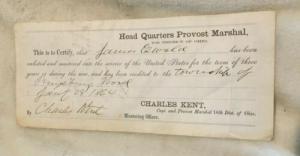 Head Quarters Provost Marshal,
This is to Certify, that James Oswald has been
enlisted and mustered into the service of the United States for the term of three
years or during the war, and has been credited to the township of
Jany 28 1864
CHARLES KENT,
Capt. and Provost Marshal 14th Dist. of Ohio.
By Charles West
Mustering Officer.